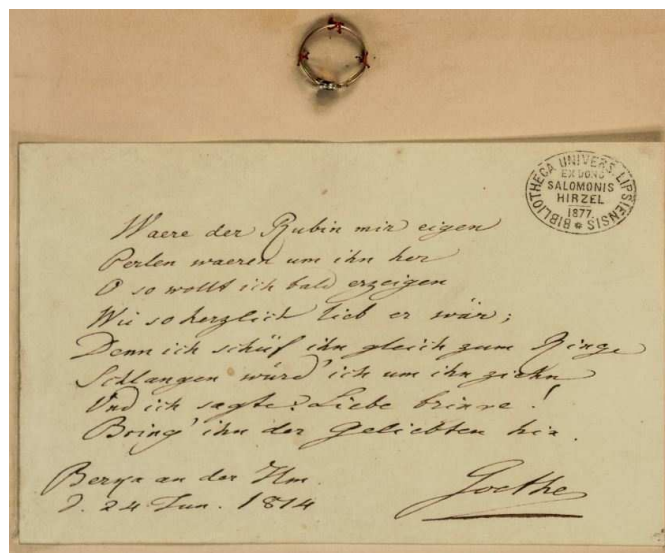 BIBLIOTHECA UNIVERS. LIPSIENSIS *
EX DONO
SALOMONIS
HIRZEL
1877.
Waere der Rubin mir eigen
Perlen waeren um ihn her
O so wollt ich bald erzeigen
Wie so herzlich lieb er wär;
Denn ich schüf ihn gleich zum Ringe
Schlangen würd' ich um ihn ziehn
Und ich sagte: Liebe bringe!
Bring' ihn der Geliebten hin.
Berka an der Ilm.
d. 24 Jun. 1814
Goethe